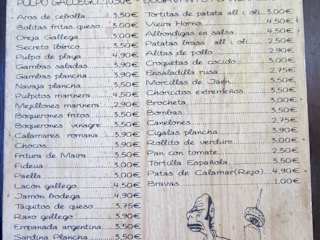 PULPO GALLEGO
Aros de cebolla 3,50€
Bolitas fritas queso 3.00€
Oreja Gallega 3.00€
Secreto ibérico 3.50€
Pulpo de playa 4.90€
Gambas saladas 3.90€
Gambas plancha 3.90€
Navaja plancha 3.50€
Pulpitos marinera 4.50€
Mejillones marinera 2.90€
Boquerones fritos 3.50€
Boquerones vinagre 3.50€
Calamares romana 3.90€
Chocos 3.90€
Fritura de Maira 3.50€
Fideua 3.00€
Paella 3.00€
Lacón gallego 4.50€
Jamón bodega 4.90€
Taquitos de queso 3.75€
Raxo gallego 3.90€
Empanada argentina 3.50€
Sardina Plancha
Tortitas de patata all i oli 3.00€
Vieira Horno 4.90€
Albondigas en salsa 4.50€
Patatas bravas all i oli 2.50€
Alitas de pollo 2.90€
Croquetas de cocido 3.00€
Ensaladilla rusa 2.75€
Morcillas de Jaén 3.00€
Choricitos extremeños 3.50€
Brocheta 3.00€
Bombas 3.50€
Canelones 2.75€
Cigalas plancha 3.90€
Rollito de verdura 3.00€
Pan con tomate 2.50€
Tortilla Española 3.50€
Patas de Calamar(Rejo) 4.90€
Bravas 1.00€